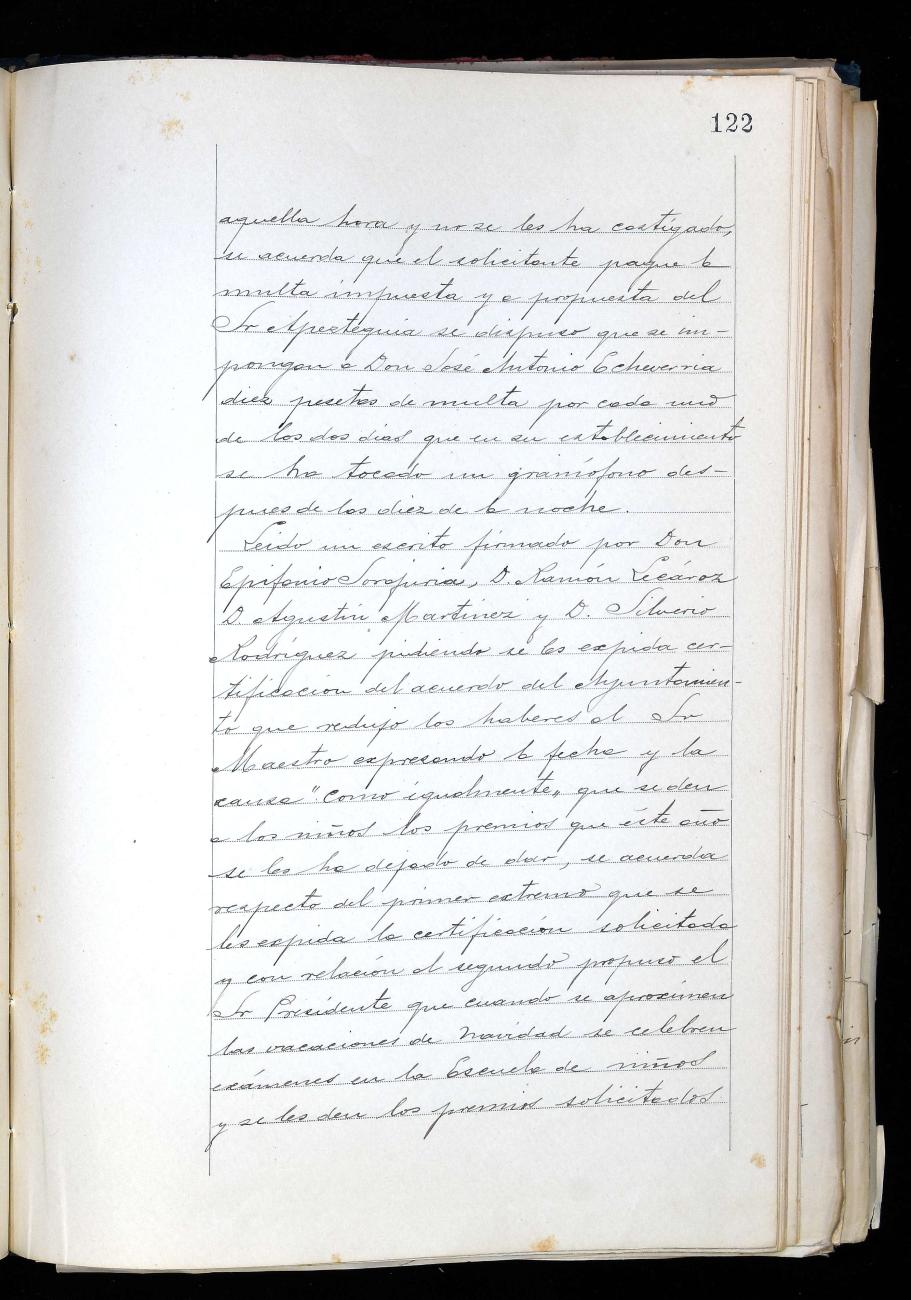 122
aquella hora y no se les ha castigado,
se acuerda que el solicitante pague la
multa impuesta y a propuesta del
Sr Apesteguia se dispuso que se im-
pongan a Don José Antonio Echeverria
diez pesetas de multa por cada uno
de los dos dias que en su establecimiento
se ha tocado un gramófono des-
pues de las diez de la noche.
Leido un escrito firmado por Don
Epifanio Sorajuria, D. Ramón Lecároz
D. Agustín Martinez y D. Silverio
Rodríguez pidiendo se les expida cer-
tificación del acuerdo del Ayuntamien-
to que redujo los haberes al Sr
Maestro expresando la fecha y la
causa "como igualmente" que se den
a los niños los premios que éste año
se les ha dejado de dar, se acuerda
respecto del primer extremo que se
les expida la certificación solicitada
y con relación al segundo propuso el
Sr Presidente que cuando se aproximen
las vacaciones de Navidad se celebren
exámenes en la Escuela de niños
y se les den los premios solicitados